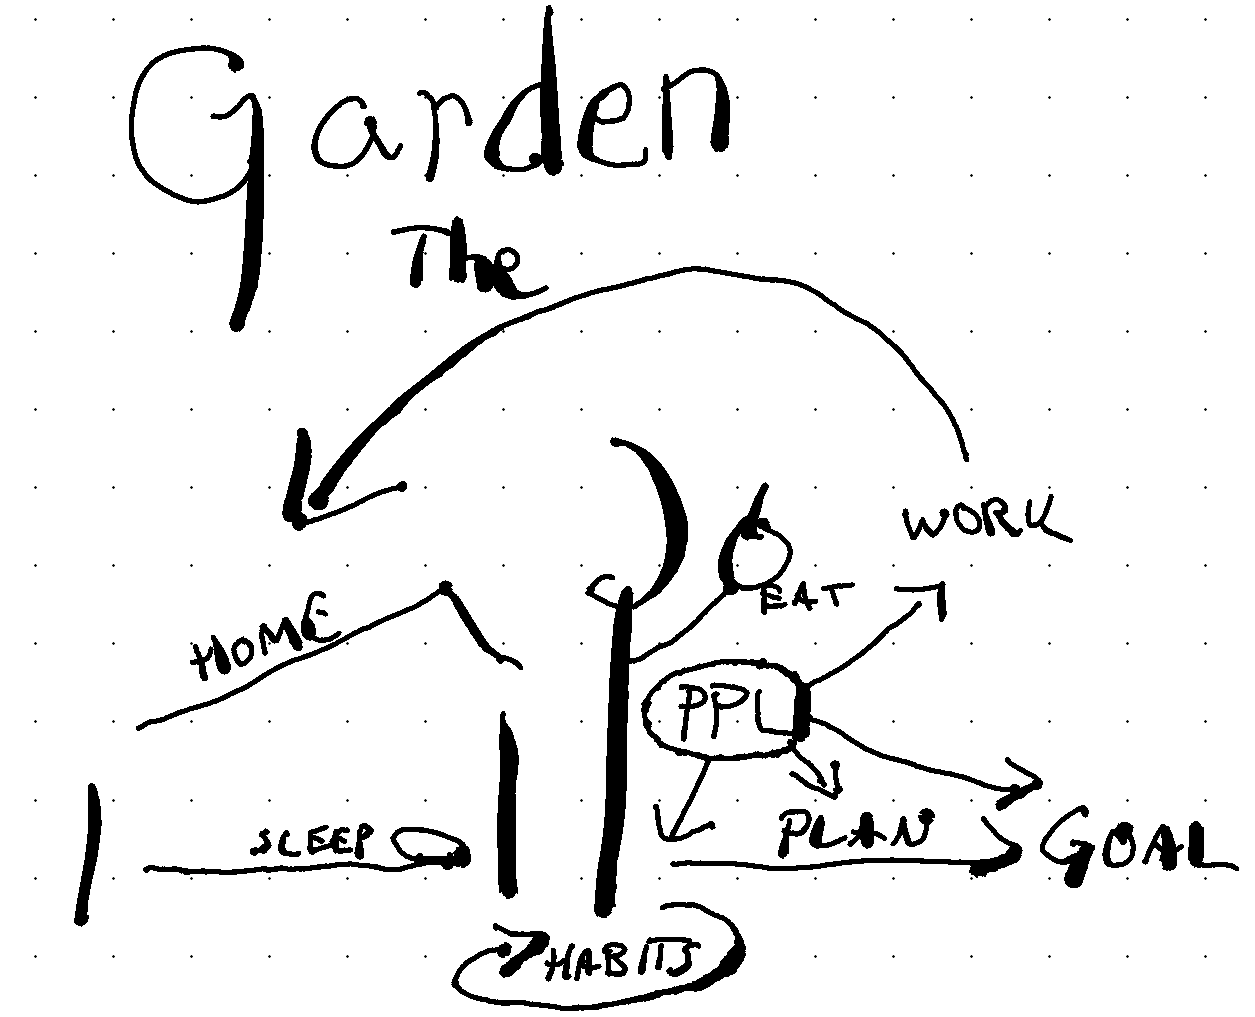 Garden
The
WORK
EAT
HOME
PPL
SLEEP
PLAN
GOAL
HABITS